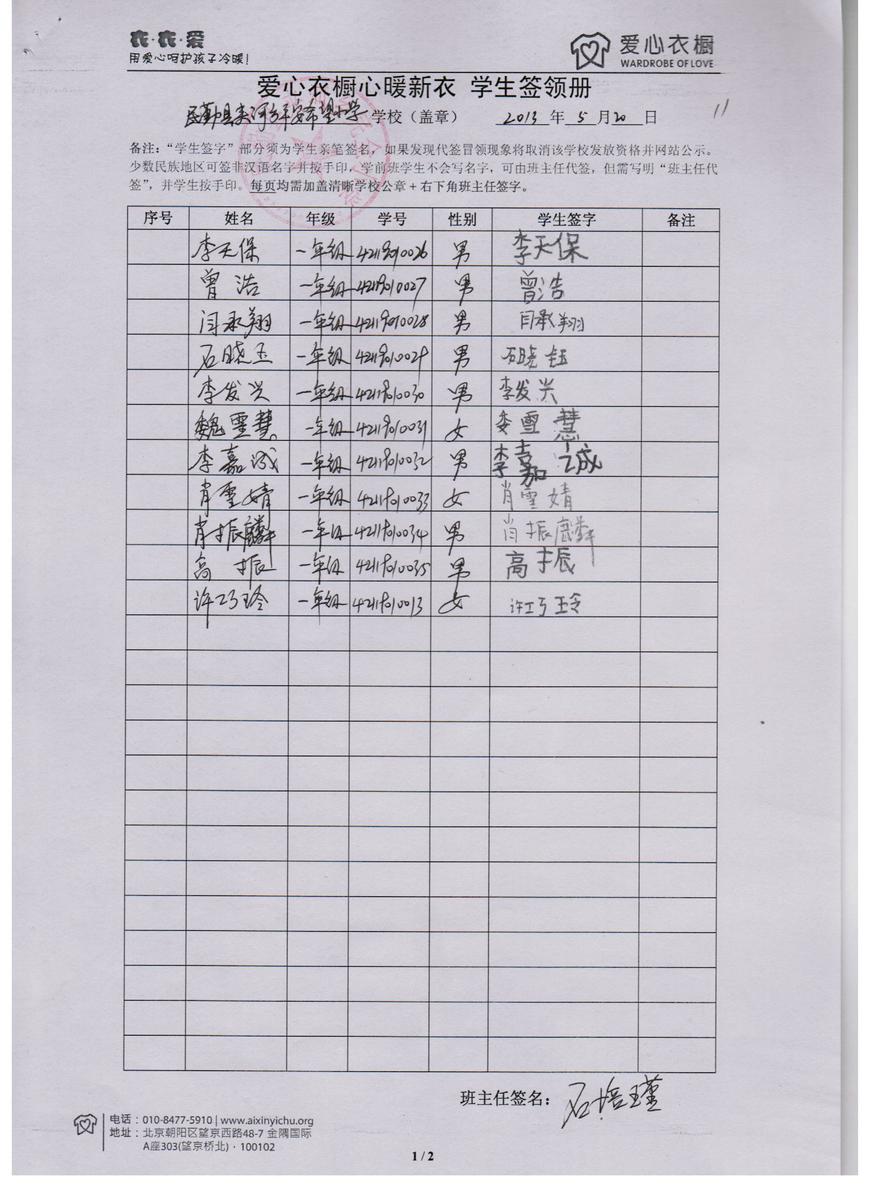 衣·衣·爱
用爱心呵护孩子冷暖!
爱心衣橱
WARDROBE OF LOVE
爱心衣橱心暖新衣 学生签领册
民勤县夹河乡平安希望小学 学校（盖章） 2013 年 5 月 20 日
11
备注：“学生签字”部分须为学生亲笔签名，如果发现代签冒领现象将取消该学校发放资格并网站公示。
少数民族地区可签非汉语名字并按手印，学前班学生不会写名字，可由班主任代签，但需写明“班主任代
签”，并学生按手印。每页均需加盖清晰学校公章＋右下角班主任签字。
序号 姓名 年级 学号 性别 学生签字 备注
李天保 一年级 42119010026 男 李天保
曾浩 一年级 42119010027 男 曾浩
闫承翔 一年级 42119010028 男 闫承翔
石晓玉 一年级 42119010029 男 石晓钰
李发兴 一年级 42119010030 男 李发兴
魏雪慧 一年级 42119010031 女 委雪慧
李嘉诚 一年级 42119010032 男 李嘉诚
肖雪婧 一年级 42119010033 女 肖雪婧
肖振麟 一年级 42119010034 男 肖振麟
高振 一年级 42119010035 男 高振
许巧玲 一年级 42119010013 女 许巧玲
班主任签名： 石培瑾
电话：010-8477-5910 | www.aixinyichu.org
地址：北京朝阳区望京西路48-7 金隅国际
A座303(望京桥北)·100102
1 / 2